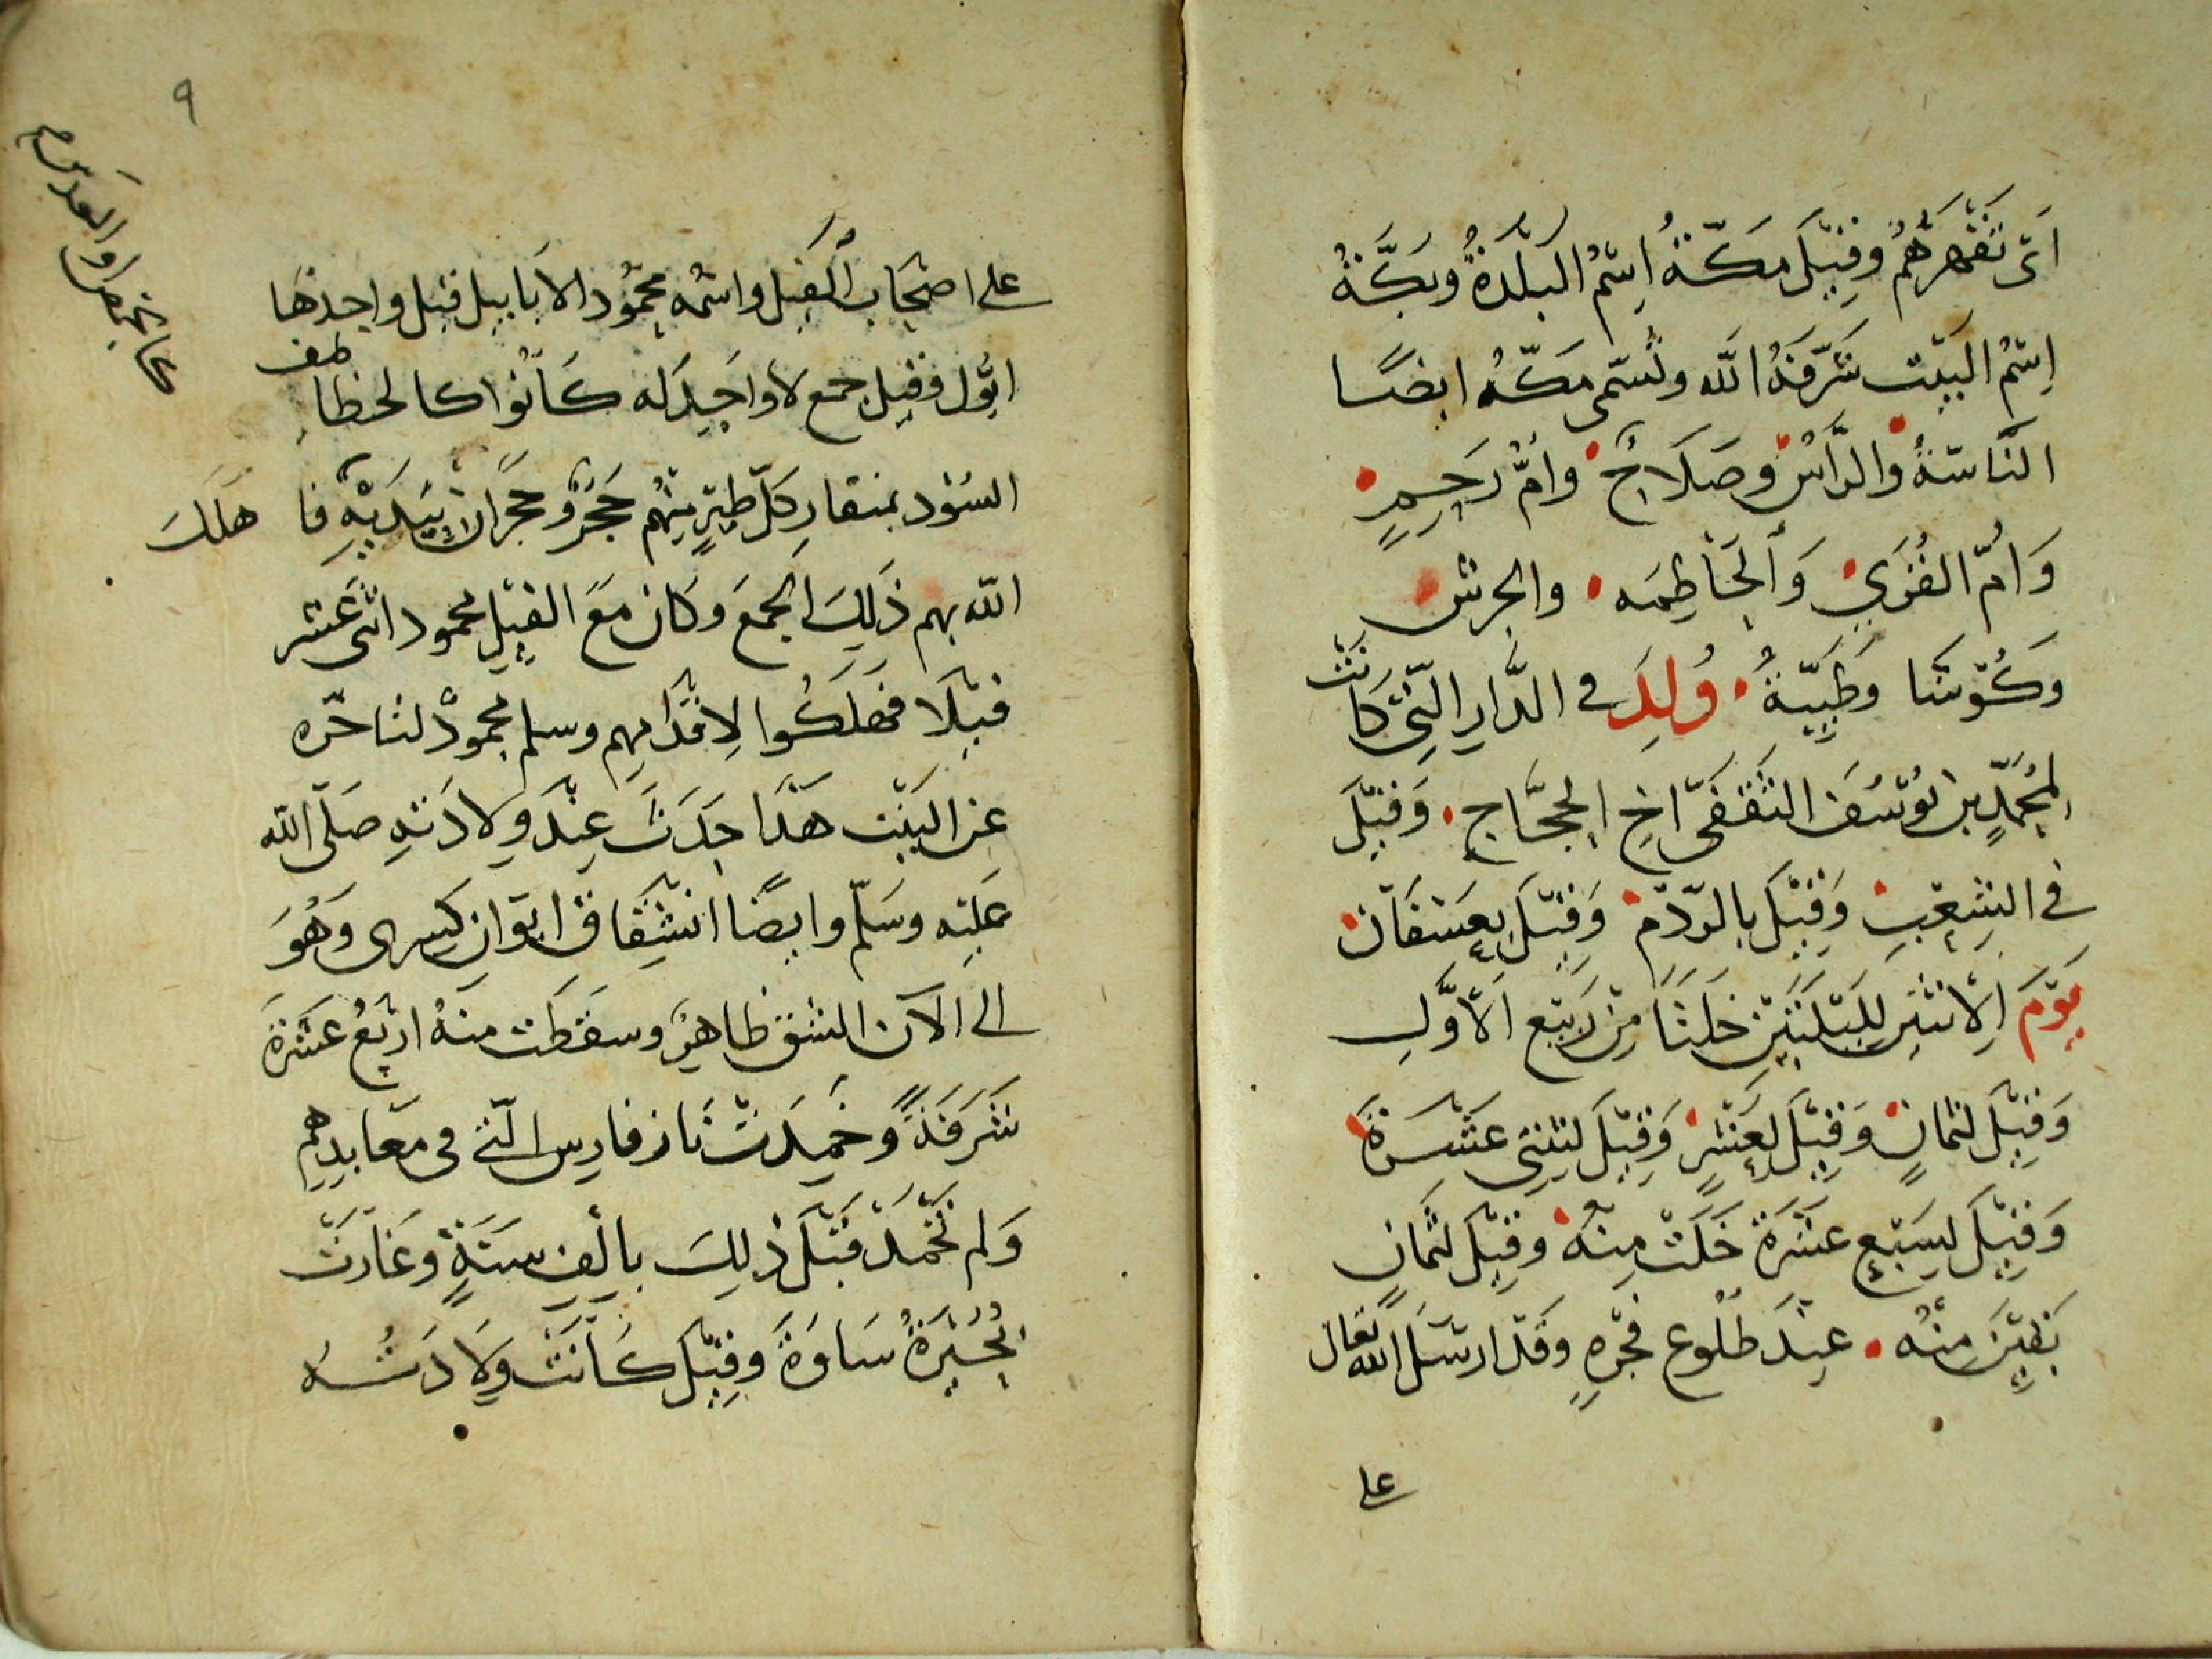 اَىْ تَقْهَرُهُمْ وَقِيْلَ مَكَّةُ اِسْمُ الْبَلْدَةُ وَبَكَّةُ
اِسْمُ الْبَيْتِ شَرَّفَهُ اللّٰه وتُسَمّى مَكّهُ ايضًا
النَّاسَّةُ وَالرَّأسُ وصَلَاحُ وَامُّ رَحِمٍ
وَاُمُّ القُرَىٰ وَالْحَاطِمَه والعرش
وَكُوْثَىا وَطَيِّبَةُ وُلِدَ فِى الدَّارِ الَّتِىْ كَانَتْ
لِمُحَمَّدِ بنِ يُوْسُفَ الثَّقَفِىّ اَخِ الحَجَّاجِ وَقِيْلَ
فِى الشِّعْبِ وَقِيْلَ بالرّدْمِ وَقِيْلَ بِعُسْفَان
يَوْمَ الِاثْنَيْنِ لِلَيْلَتَيْنِ خَلَتَا مِنْ رَبِيْعِ الْاَوَّلِ
وَقِيْلَ لثمانٍ وَقِيْلَ لعَشْرٍ وَقِيْلَ لِثِنْتَى عَشَرَةَ
وَقِيْلَ لِسَبْعِ عَشَرَةَ خَلَتْ مِنْهُ وَقِيْلَ لثَمَانٍ
بَقِيْنَ مِنْهُ عِنْدَ طُلُوعِ فَجْرِهِ وَقَدْ ارْسَلَ اللّٰه تعالى
على
٩
على اصحاب الفيل واسْمُه مَحْمُود الاَبابيل قيل واحدها
ابّول وقيل جمع لا واحِدَ له كَانُوا كالخطاطيف
السّود بمنقارِ كلّ طيرٍ مِنْهُم حَجَرٌ وحَجَرَانِ بِيَدَيْهِ فاهلك
اللّه بهم ذَلِكَ الجمعَ وَكَانَ مَعَ الفِيْلِ محمود اثنى عَشَر
فيْلًا فَهَلَكُوا لِاقْدَامِهِم وسلم محمودٌ لتاخّره
عَنِ الْبَيْتِ هَذَا حَدَثَ عِنْدَ وِلادَتهِ صَلّى اللّه
عَلَيْه وَسَلّم وايضًا انْشِقَاقُ ايْوَانِ كِسْرى وَهُوَ
الى الآن الشق ظاهِرٌ وسقطت منهُ اربَعُ عَشَرَةَ
شَرَفَةً وَخَمِدَتْ نَارُ فارِس الَّتى فى مَعَابدِهِم
وَلم تَخْمُدْ قَبْلَ ذٰلِكَ بِاَلْفِ سَنَةٍ وَغَارَتْ
بُحَيْرَةُ سَاوَةَ وَقِيْلَ كَانَتْ وِلَادَتُه